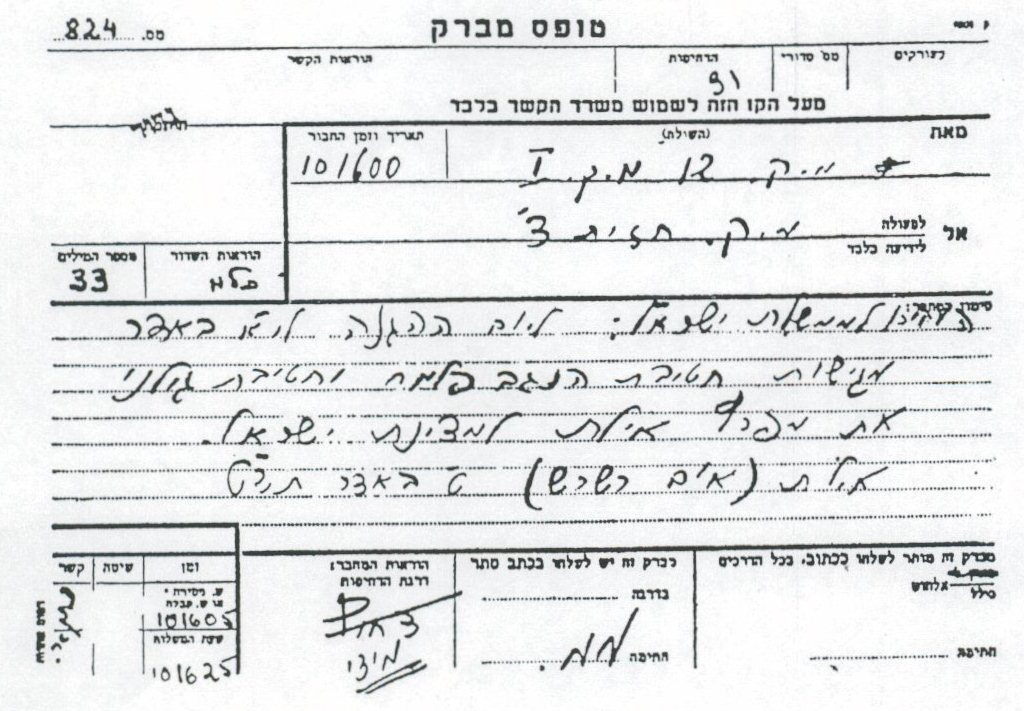 טופס מברק
מס. 824
לעורקים
מס' סדורי
הדחיפות
הוראות הקשר
מעל הקו הזה לשמוש משרד הקשר בלבד
מאת
(השולח)
תאריך וזמן החבור
101600
מ.ק.
אל
לפעולה
לידיעה בלבד
מ.ק. חזית ד'
הוראות השדור
מספר המילים
33
לממשלת ישראל. ליום ההגנה י"א באדר
מגישות חטיבת הנגב פלמח וחטיבת גולני
את מפרץ אילת למדינת ישראל.
אילת (אום רשרש) ט באדר תש"ט
מברק זה מותר לשלחו ככתוב, בכל הדרכים
אלחוט
חתימה
מברק זה יש לשלחו בכתב סתר
בדרגה
חתימה
הוראות המחבר:
דרגת הדחיפות
מידי
זמן
שיטה
קשר
101605
שעת המשלוח
101625